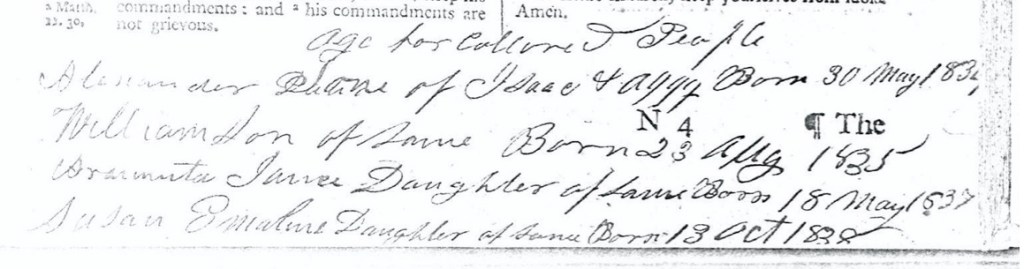 a Matth. commandments: and a his commandments are
11. 30. not grievous.
Amen.
age for Collored People
Alexander of Isaac & Aggy Born 30 May 183
N 4 ¶ The
William Son of Same Born 23 Aug 1835
Araminta Janee Daughter of Same Born 18 May 1837
Susan Emaline Daughter of Same Born 13 Oct 1838